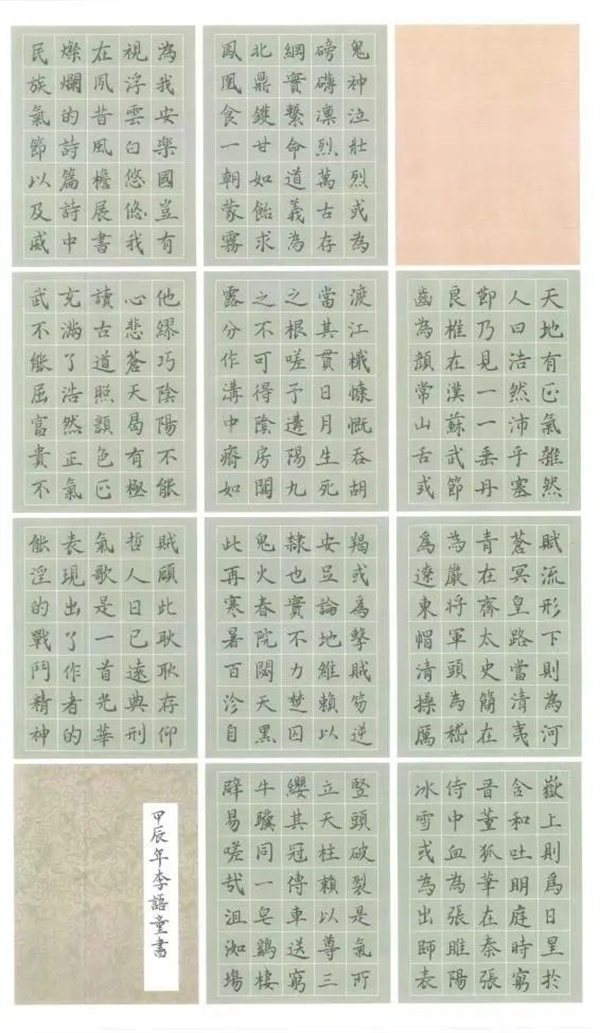 天地有正氣雜然
人曰浩然沛乎塞
節乃見一一垂丹
良椎在漢蘇武節
齒為顏常山舌或
賦流形下則為河
蒼冥皇路當清夷
青在齊太史簡在
為嚴將軍頭為嵇
爲遼東帽清操厲
嶽上則爲日星於
含和吐明庭時窮
晉董狐華在秦張
侍中血為張睢陽
冰雪或為出師表
鬼神泣壯烈或為
磅礴凜烈萬古存
網實繫命道義為
北鼎鑊甘如飴求
鳳凰食一朝蒙霧
渡江檝慷慨吞胡
當其貫日月生死
之根嗟予遘陽九
之不可得陰房闃
露分作溝中瘠如
羯或爲擊賊笏逆
安足論地維賴以
隸也實不力楚囚
鬼火春院閟天黑
此再寒暑百沴自
豎頭破裂是氣所
立天柱賴以尊三
纓其冠傳車送窮
牛驥同一皂鷄棲
辟易嗟哉沮洳場
為我安樂國豈有
視浮雲白悠悠我
在夙昔風檐展書
燦爛的詩篇詩中
民族氣節以及威
他繆巧陰陽不能
心悲蒼天曷有極
讀古道照顏色正
充滿了浩然正氣
武不能屈富貴不
賊顧此耿耿存仰
哲人日已遠典刑
氣歌是一首光華
表現出了作者的
能淫的戰鬥精神
甲辰年李語童書